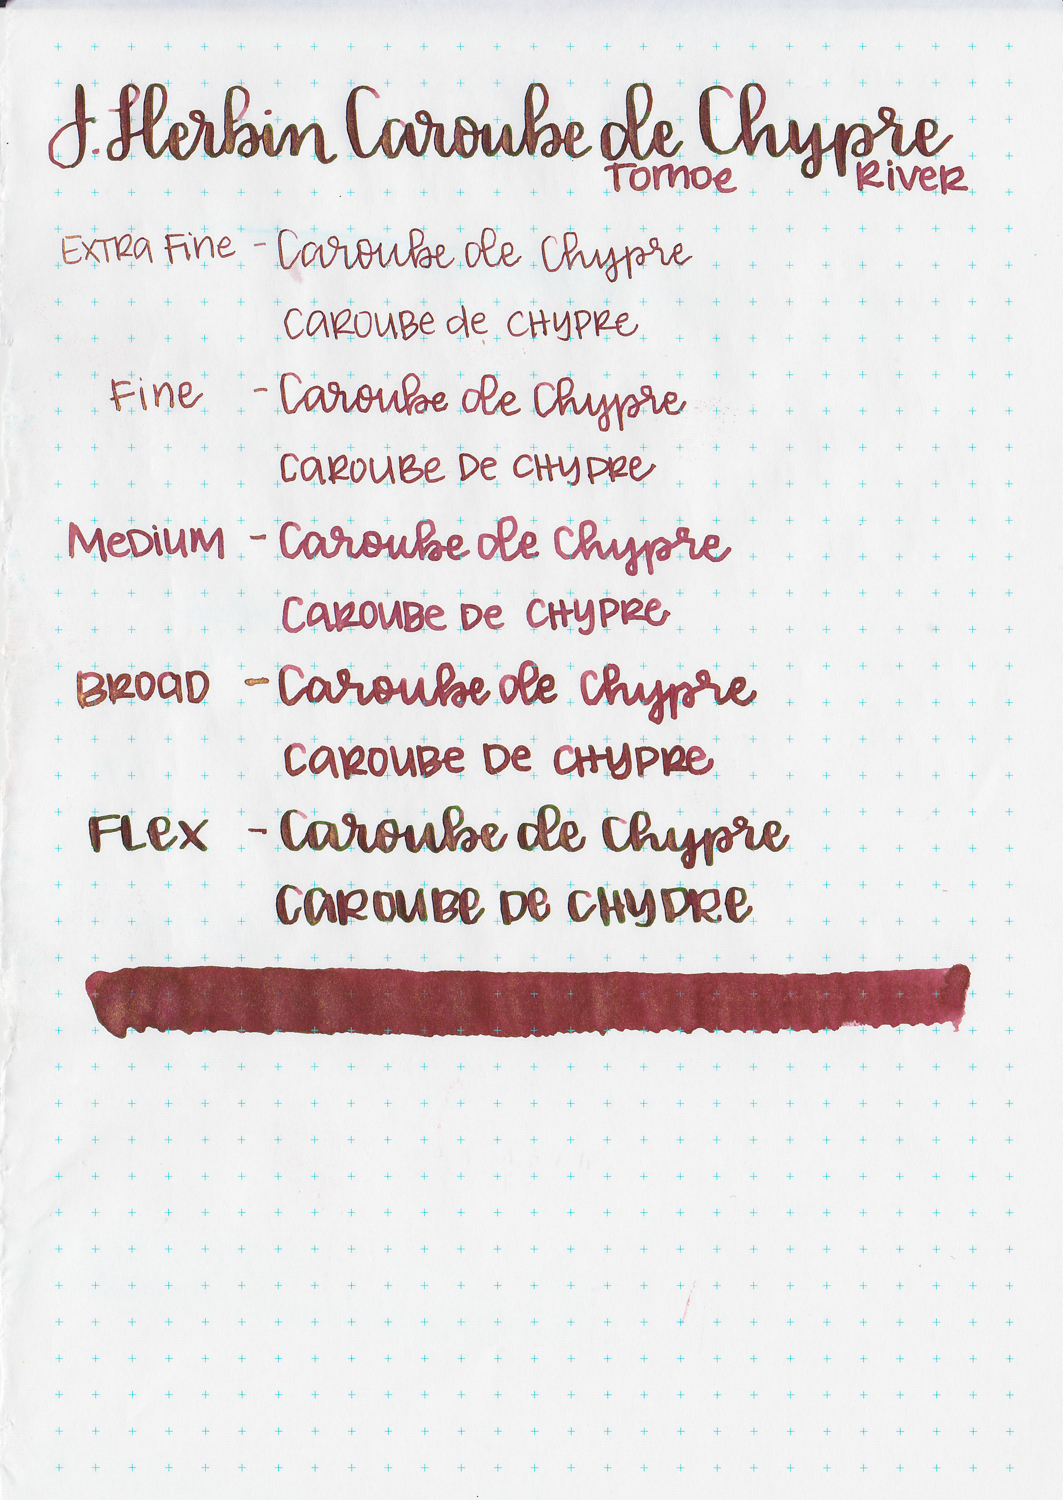 J. Herbin Caroube de Chypre
Tomoe River
Extra Fine - Caroube de Chypre
Caroube de Chypre
Fine - Caroube de Chypre
Caroube De Chypre
Medium - Caroube de Chypre
Caroube De Chypre
Broad - Caroube de Chypre
Caroube De Chypre
Flex - Caroube de Chypre
Caroube De Chypre